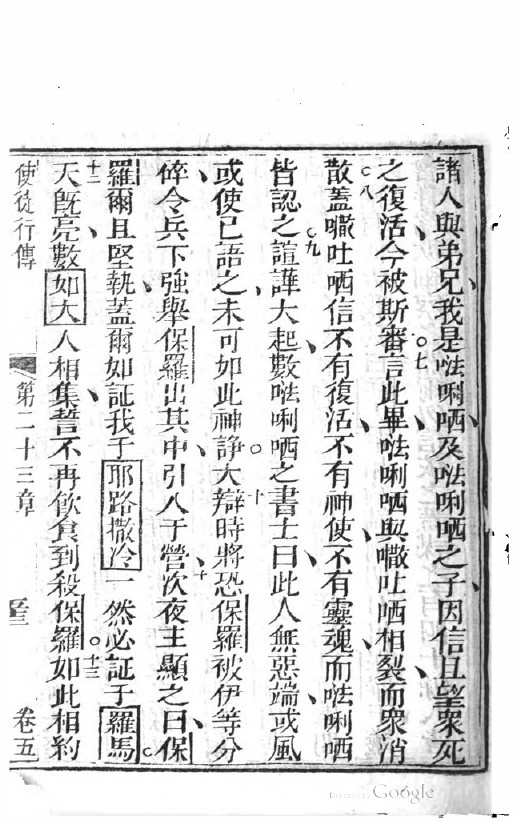 諸人與弟兄我是呿唎哂及呿唎哂之子因信且望衆死
之復活今被斯審○七言此畢呿唎哂與㘔吐哂相裂而衆消
散○八蓋㘔吐哂信不有復活不有神使不有靈魂而呿唎哂
皆認之○九諠譁大起數呿唎哂之書士曰此人無惡端或風
或使已語之未可如此神諍○十大辯時將恐保羅被伊等分
碎令兵下強舉保羅出其中引入于營次夜主顯之曰保
羅爾且堅執蓋爾如証我于耶路撒冷一然必証于羅馬
十二天旣亮數如大人相集誓不再飲食到殺保羅○十三如此相約
使徒行傳 第二十三章 卷五
Digitized by Google